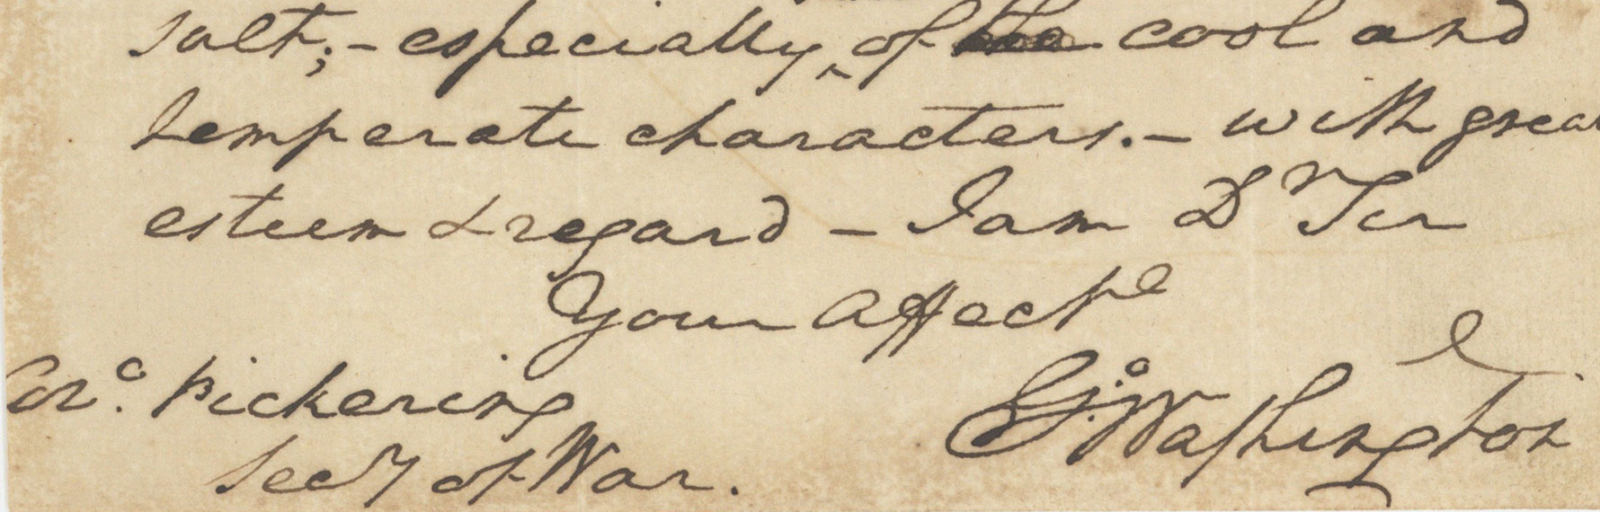 salt;– especially of the cool and
temperate characters.– with great
esteem & regard – I am Dr Sir
Your Affecte
Go: Washington
Pickering
Secry of War.